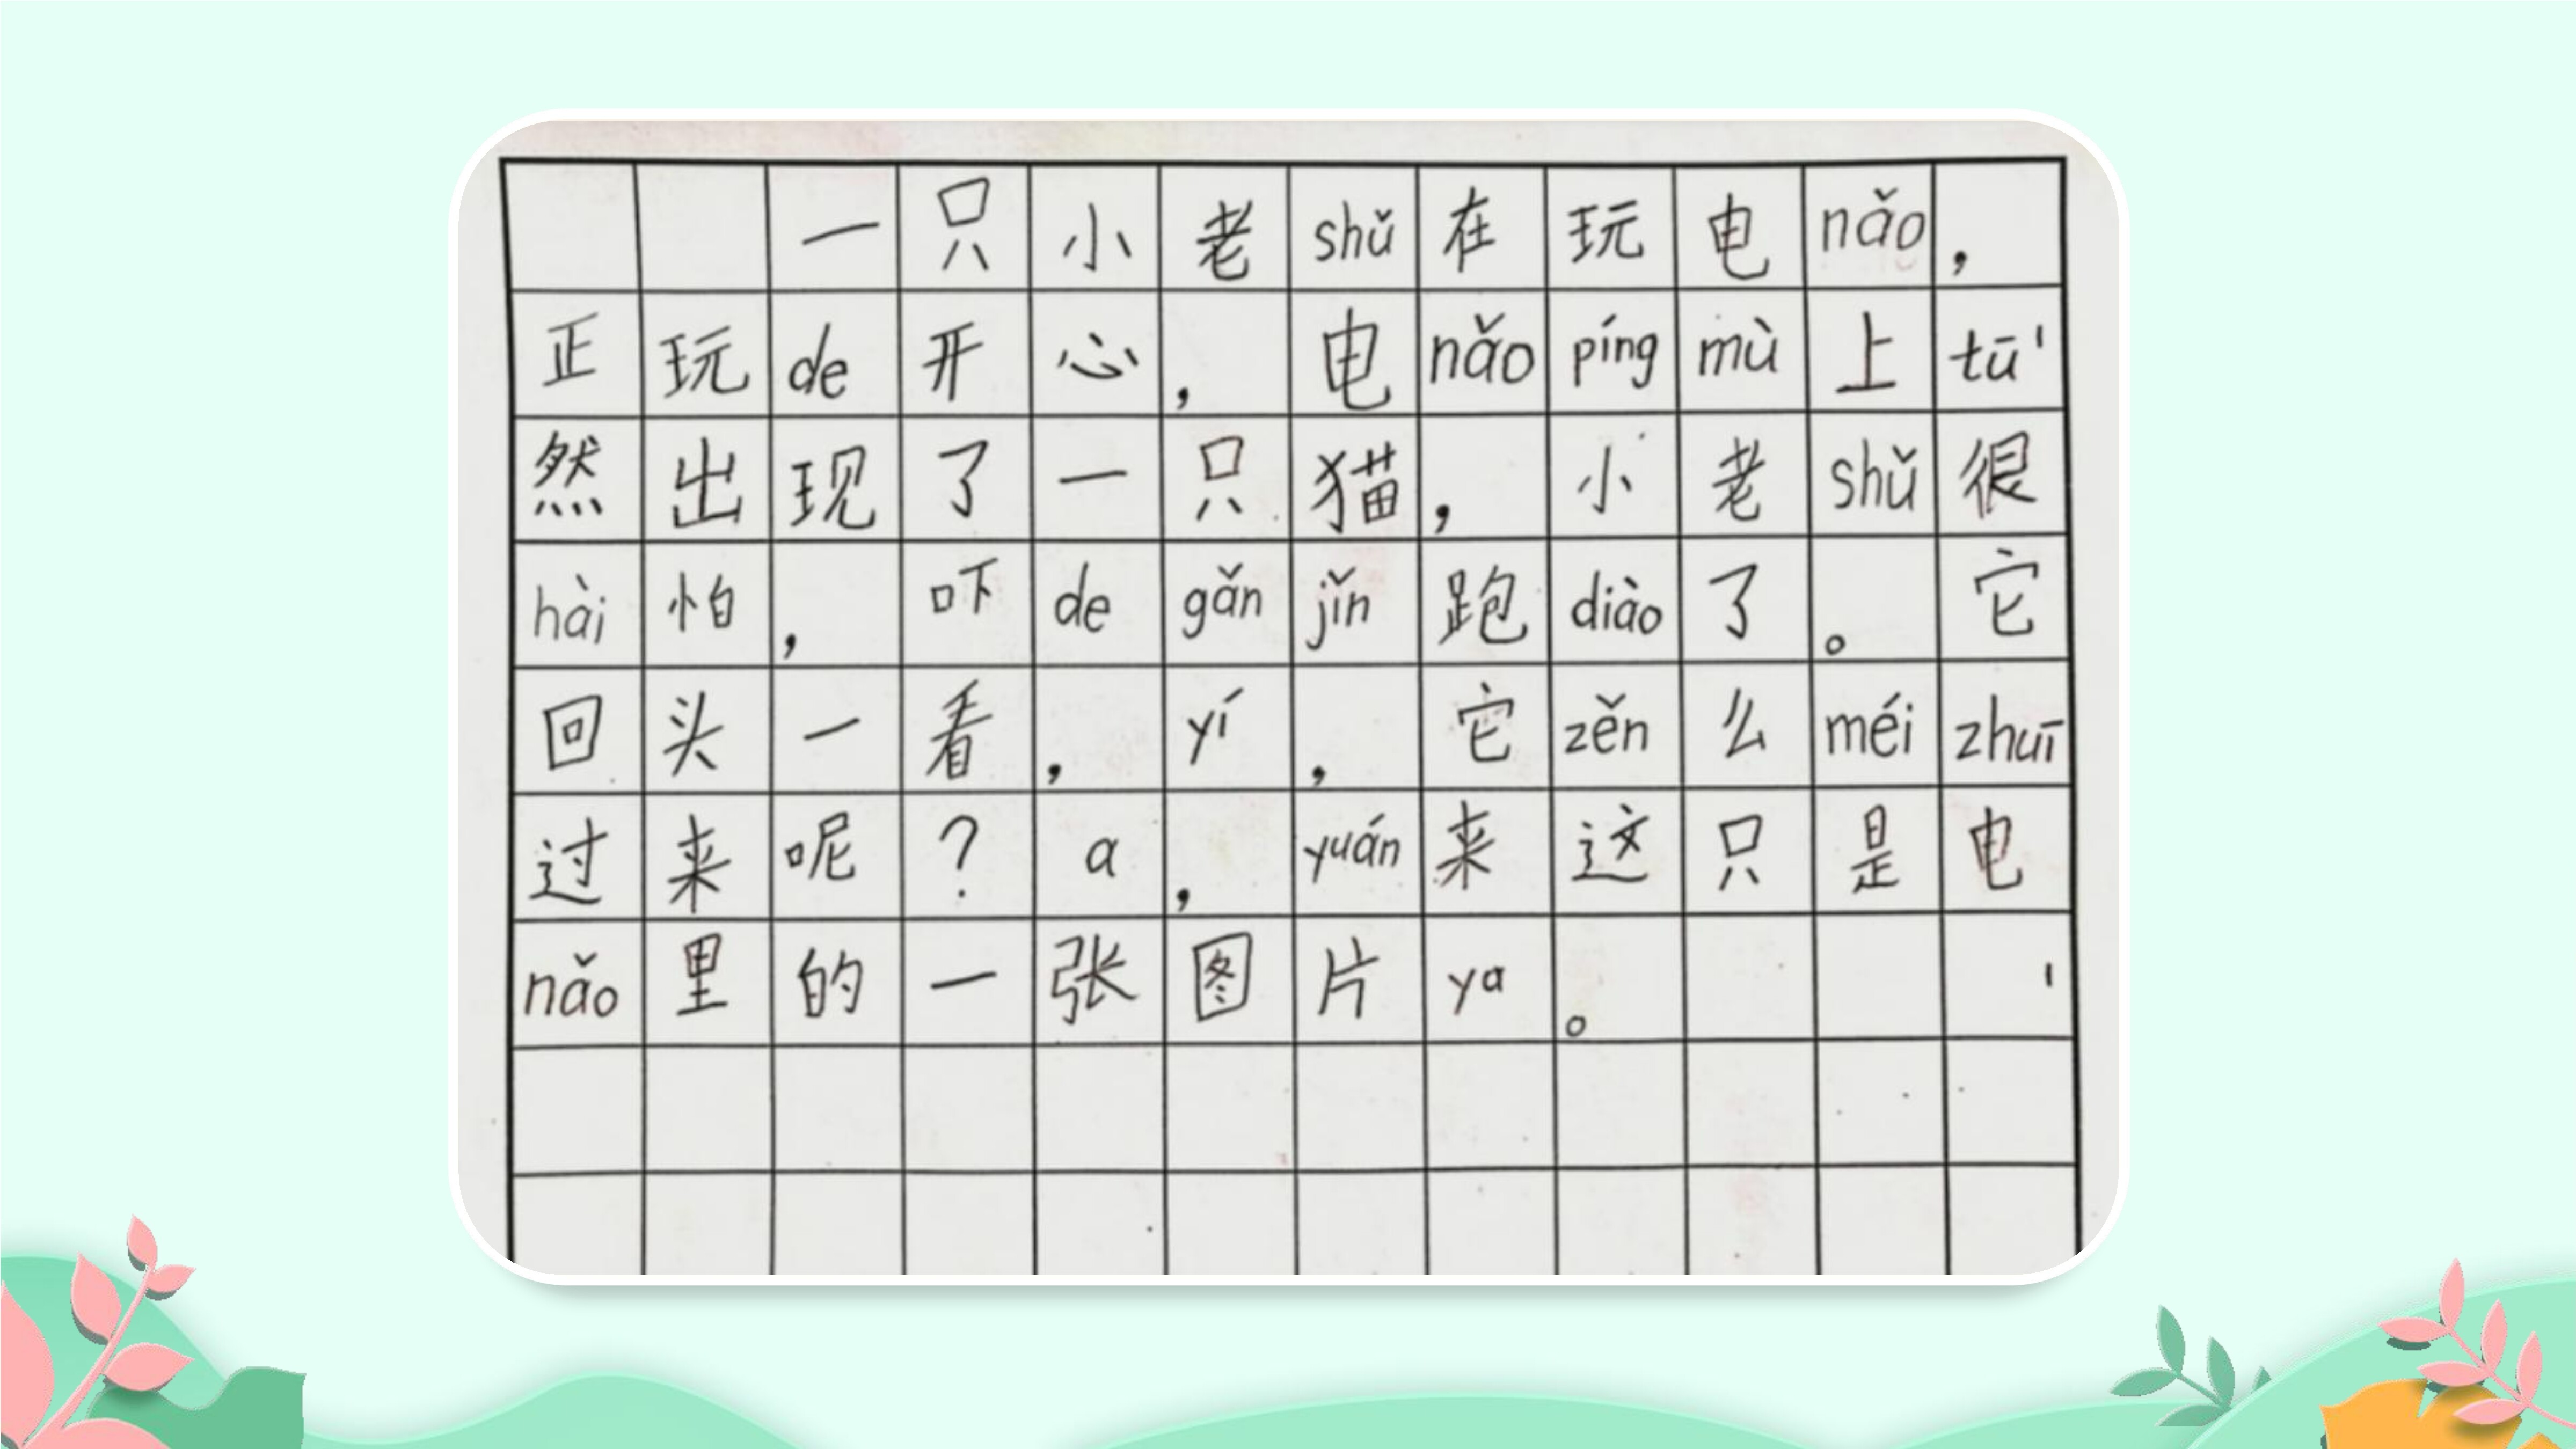 一只小老shǔ在玩电nǎo，
正玩de开心，电nǎo píng mù上tū
然出现了一只猫，小老shǔ很
hài怕，吓de gǎn jǐn跑diào了。它
回头一看，yí，它zěn么méi zhuī
过来呢？a，yuán来这只是电
nǎo里的一张图片ya。